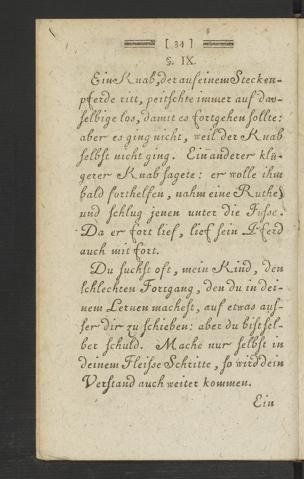 [ 34 ]
§. IX.
Ein Knab, der auf seinem Stecken-
pferde ritt, peitschte immer auf das-
selbige los, damit es fortgehen sollte:
aber es ging nicht, weil der Knab
selbst nicht ging. Ein anderer klü-
gerer Knab sagete: er wolle ihm
bald forthelfen, nahm eine Ruthe,
und schlug jenen unter die Füsse.
Da er fort lief, lief sein Pferd
auch mit fort.
Du suchst oft, mein Kind, den
schlechten Fortgang, den du in dei-
nem Lernen machest, auf etwas aus-
ser dir zu schieben: aber du bist sel-
ber schuld. Mache nur selbst in
deinem Fleisse Schritte, so wird dein
Verstand auch weiter kommen.
Ein